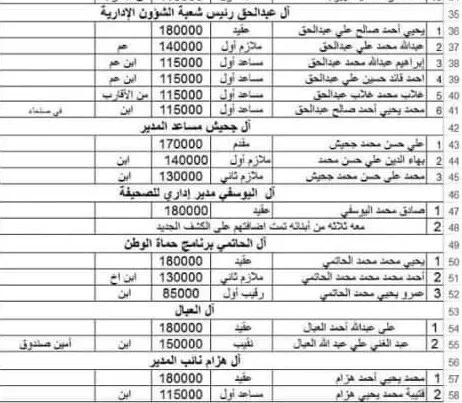 35 آل عبدالحق رئيس شعبة الشؤون الإدارية
36 1 يحيى أحمد صالح علي عبدالحق عقيد 180000
37 2 عبدالله محمد علي عبدالحق ملازم أول 140000 عم
38 3 إبراهيم عبدالله محمد عبدالحق مساعد أول 115000 ابن عم
39 4 احمد قائد حسين علي عبدالحق مساعد أول 115000 ابن عم
40 5 غلاب محمد غلاب عبدالحق مساعد أول 115000 من الأقارب
41 6 محمد يحيى أحمد صالح عبدالحق مساعد أول 115000 ابن في صنعاء
42 آل جحيش مساعد المدير
43 1 علي حسن محمد جحيش مقدم 170000
44 2 بهاء الدين علي حسن محمد ملازم أول 140000 ابن
45 3 محمد علي حسن محمد جحيش ملازم ثاني 130000 ابن
46 آل اليوسفي مدير إداري للصحيفة
47 1 صادق محمد اليوسفي عقيد 180000
48 2 معه ثلاثه من أبنائه تمت اضافتهم على الكشف الجديد
49 آل الحاتمي برنامج حماة الوطن
50 1 يحيى محمد محمد الحاتمي عقيد 180000
51 2 أحمد محمد محمد محمد الحاتمي ملازم ثاني 130000 ابن اخ
52 3 عمرو يحيى محمد الحاتمي رقيب أول 85000 ابن
53 آل العبال
54 1 علي عبدالله أحمد العبال عقيد 180000
55 2 عبد الغني علي عبد الله العبال نقيب 150000 ابن أمين صندوق
56 آل هزام نائب المدير
57 1 محمد يحيى أحمد هزام عقيد 180000
58 2 قتيبة محمد يحيى هزام مساعد أول 115000 ابن